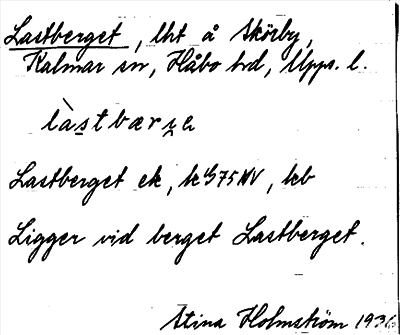 Lastberget, lht å Skörby,
Kalmar sn, Håbo hd, Upps. l.
làstbærꞩe
Lastberget ek, kb
Ligger vid berget Lastberget.
Stina Holmström 1936